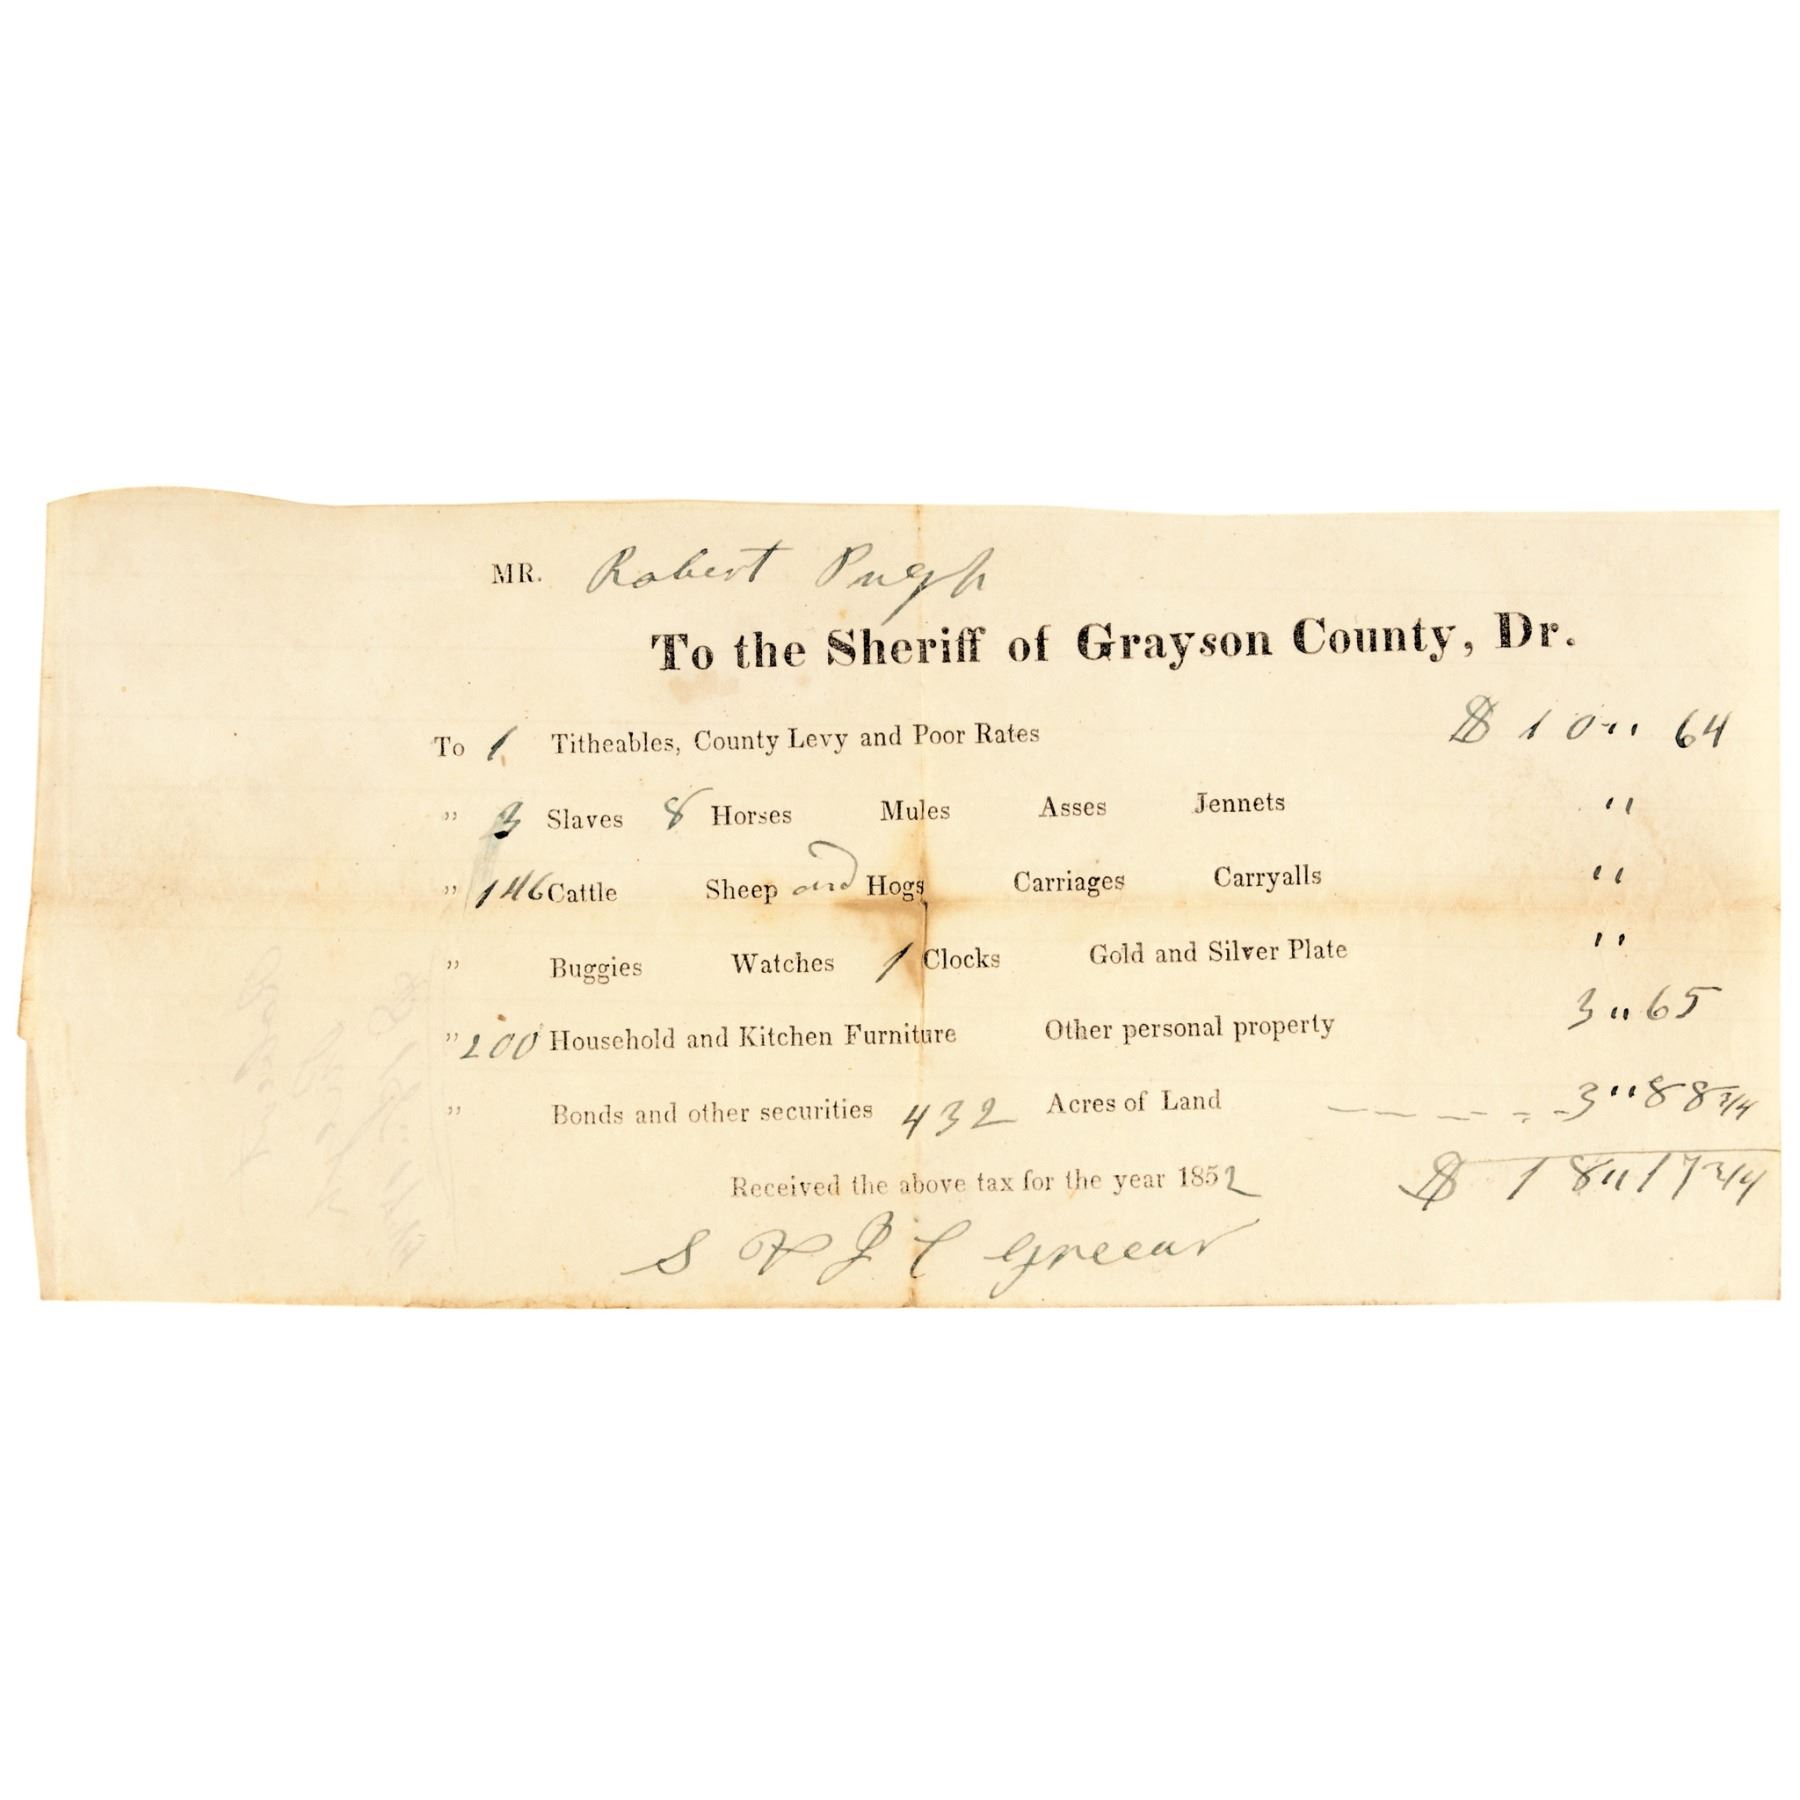 MR. Robert Pugh
To the Sheriff of Grayson County, Dr.
To 1 Titheables, County Levy and Poor Rates $ 10 " 64
" 3 Slaves 8 Horses Mules Asses Jennets "
" 146 Cattle Sheep and Hogs Carriages Carryalls "
" Buggies Watches 1 Clocks Gold and Silver Plate "
" 200 Household and Kitchen Furniture Other personal property 3 " 65
" Bonds and other securities 432 Acres of Land 3 " 88 3/4
Received the above tax for the year 1852 $ 18 " 17 3/4
S J C Greear